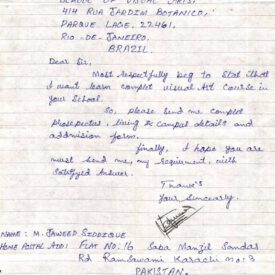 SCHOOL OF VISUAL ARTS,
414 RUA JARDIM BOTANICO,
PARQUE LAGE. 22461,
RIO-DE-JANEIRO,
BRAZIL.
Dear Sir,
Most respectfully beg to stat that
I want learn complet visual Art course in
your School.
So, please send me complet
prospectes, living & campus details and
addmision form.
finally, I hope you are
must send me, my requirment, with
satitfyed Answer.
Thanx's
Your Sincerely.
NAME: M. JAWEED SIDDIQUE
HOME POSTAL ADD: FLAT NO: 16 Saba Manzil Sandas
Rd RamSwami Karachi no: 3
PAKISTAN.